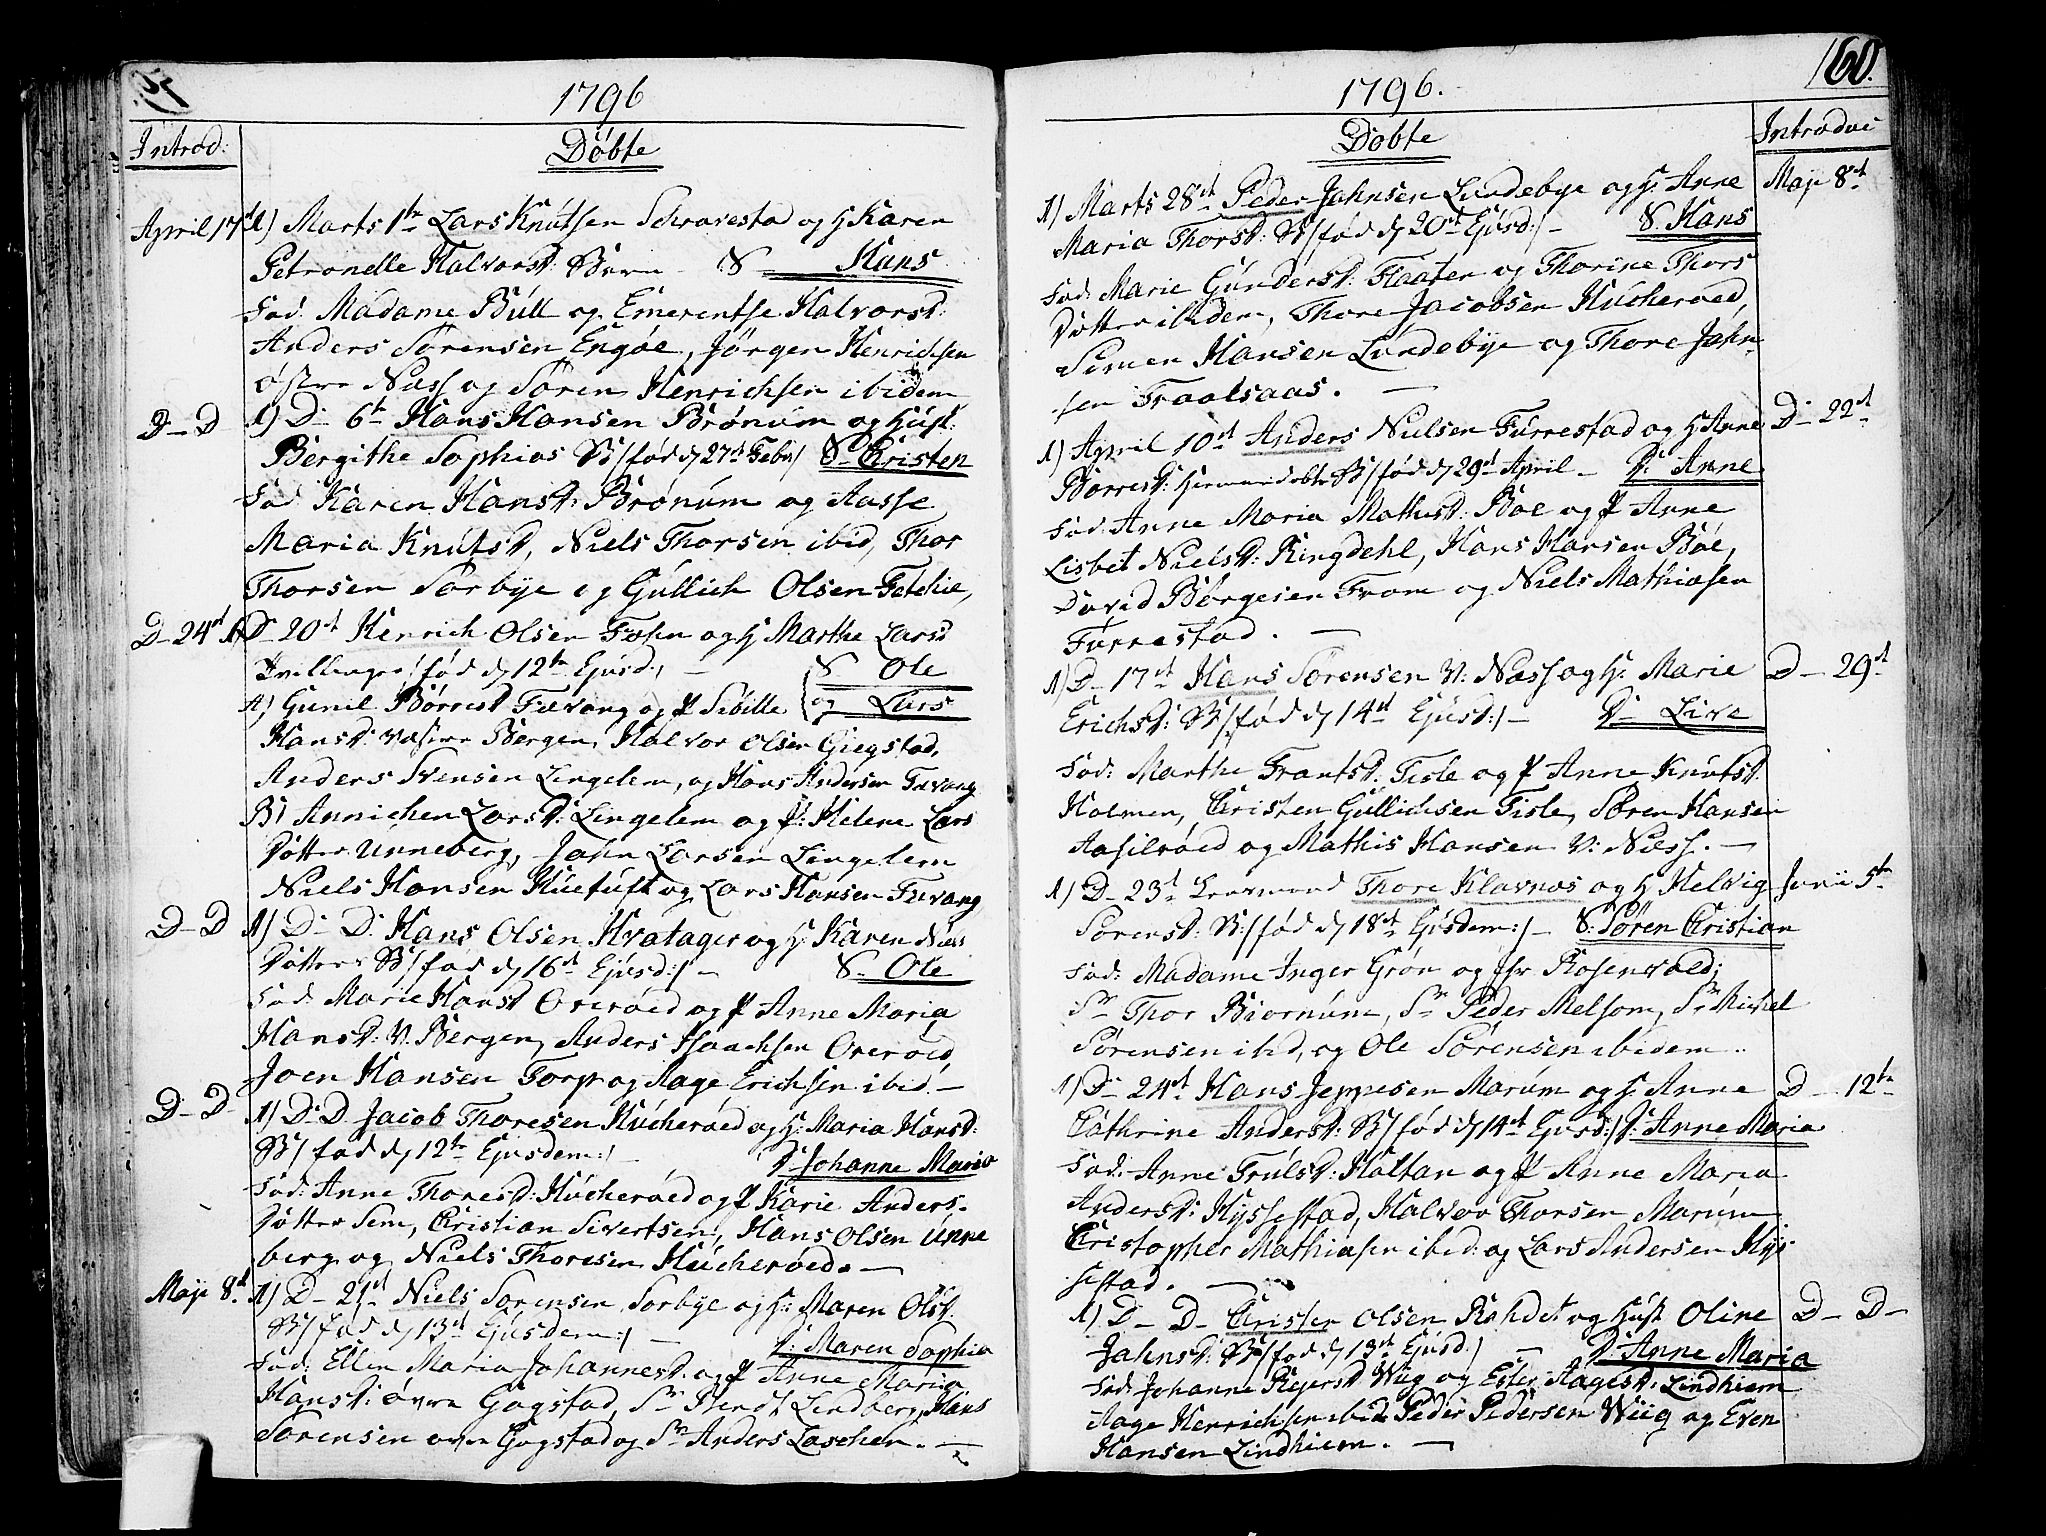 1796
Introd:
Döbte
April 17de
A) Marts 1te Lars Knutsen Schravestad og H Karen
Petronelle Halvorsd: Barn - S Hans
Fad. Madame Bull og Emerentse Halvorsd:
Anders Sörensen Engöe, Jörgen Henrichsen
östre Næss og Sören Henrichsen ibidem
D - D
A) D- 6te Hans Hansen Brönum og Hust:
Bergithe Sophias B/ fød d 27de Febr/ S- Cristen
Fad. Karen Hansd: Brönum og Aasse
Maria Knutsd, Niels Thorsen ibid, Thor
Thorsen Sørbye og Gullich Olsen Fetchie,
D- 24de
A) D- 20de Henrich Olsen og H Marthe Larsd
Tvillinger / fød d 12te Ejusd:/ - S Ole
A) Gunil Börresd Fevang og P Sibille og Lars
Hansd: vestre Bergen, Halvor Olsen Giegstad,
Anders Svensen Lingelem, og Hans Andersen Fevang
B) Annichen Larsd: Lingelem og P: Helene Lars
Dötter Unneberg, John Larsen Lingelem
Niels Hansen Huetuft og Lars Hansen Fevang
D- D
A) D- D: Hans Olsen Hvatager og H: Karen Niels
Dötters B/ fød d 16de Ejusd:/ - S- Ole
Fad: Marie Hansd Overöed og P Anne Maria
Hansd: V. Bergen, Anders Isaachsen Overöed
Joen Hansen Torp og Aage Erichsen ibid -
D- D
A) D- D Jacob Thoresen Hucheröed og H: Maria Hansd:
B/ fød d 12te Ejusdem:/ - D- Johanne Maria
Fad: Anne Thoresd: Hucheröed og P Karie Anders-
Dötter Sem, Cristian Sivertsen, Hans Olsen Unne
berg og Niels Thoresen Hucheröed. -
Maje 8de
A) D- 21de Niels Sörensen Sørbye og H: Maren Olsd.
B/ fød d 13de Ejusdem:/ - D: Maren Sophia
Fad: Ellen Maria Johannesd: og P Anne Maria
Hansd: övre Gogstad, Sr Bendt Lindberg, Hans
Sörensen övre Gogstad og Sr Anders Laschen. -
160.
1796.
Döbte
Introduc
A) Marts 28de Peder Jahnsen Lundebye og H: Anne
Maje 8de
Maria Thorsd: B/ fød d 20de Ejusd:/ - S. Hans
Fad: Marie Gundersd: Flaaten og Thorine Thors
Dötter ibidem, Thore Jacobsen Hucheröed,
Simen Hansen Lundebye og Thore Jahn-
sen Traalsaas. -
A) April 10de Anders Nielsen Furrestad og H Anne
D- 22de
Börresd: Hiemmedöbte B/ fød d 29de April - D: Anne
Fad: Anne Maria Mathisd: Böe og P Anne
Lisbet Nielsd: Ringdehl, Hans Hansen Böe,
David Börgesen From og Niels Mathiasen
Furrestad. -
A) D- 17de Hans Sörensen V: Næss og H: Marie
D- 29de
Erichsd: B/ fød d 14de Ejusd:/ - D- Live
Fad: Marthe Frantsd: Tisle og P Anne Knutsd.
Holmen, Cristen Gullichsen Tisle, Sören Hansen
Aasilröed og Mathis Hansen V: Næss. -
A) D- 23de Thore Klavnæs og H Helvig
Junii 5te
Sörensd: B:/ fød d 18de Ejusdem:/ - S: Sören Cristian
Fad: Madame Inger Grön og Jfr Rosenvold,
Sr Thor Biornum, Sr Peder Melsom, Sr Michel
Sörensen ibid, og Ole Sörensen ibidem..
A) D- 24de Hans Jeppesen Marum og H: Anne
D- 12te
Cathrine Andersd: B/ fød d 14de Ejusd:/ D: Anne Maria
Fad: Anne Trulsd: Haltan og P Anne Maria
Andersd: Hyssestad, Halvor Thorsen Marum
Cristopher Mathiasen ibid: og Lars Andersen Hys
sestad. -
A) D- D- Cristen Olsen og Hust Oline
D- D-
Jahnsd: B/ fød d 13de Ejusd:/ - D: Anne Maria
Fad: Johanne Wiig og Ester Aagesd: Lindhiem
Aage Henrichsen ibid: Peder Pedersen Wiig og Even
Hansen Lindhiem. -